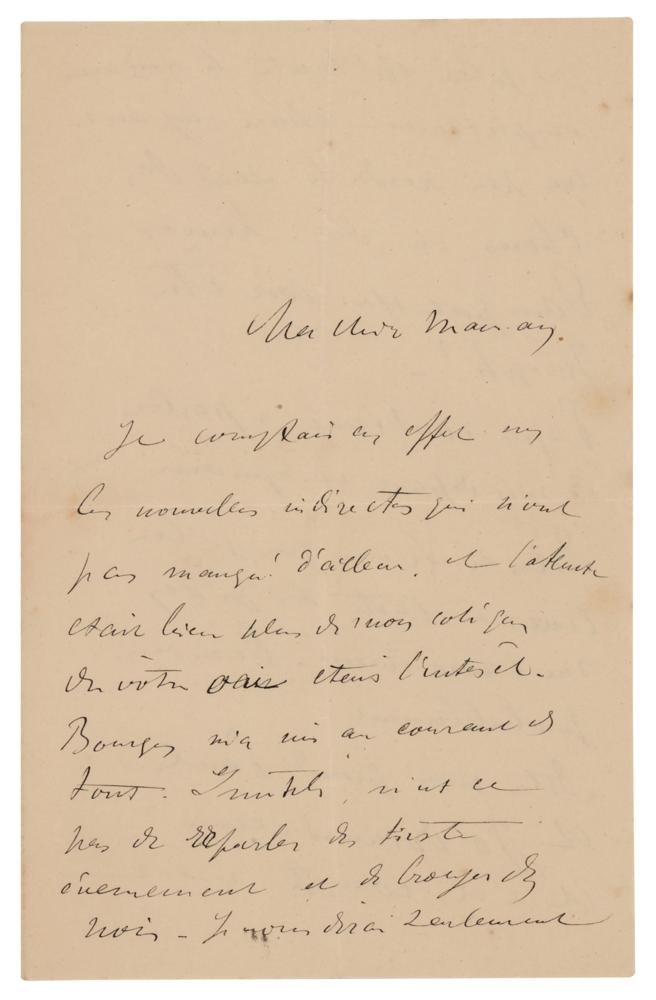 Ma chère Maman,
Je comptais en effet sur
les nouvelles indirectes qui n'ont
pas manqué d'ailleurs, et l'attente
était bien plus de mon coté que
du vôtre où était l'intérêt.
Bourges m'a mis au courant de
tout. Inutile, n'est ce
pas de reparler des tristes
évenement et de broyer du
noir - Je vous dirai seulement